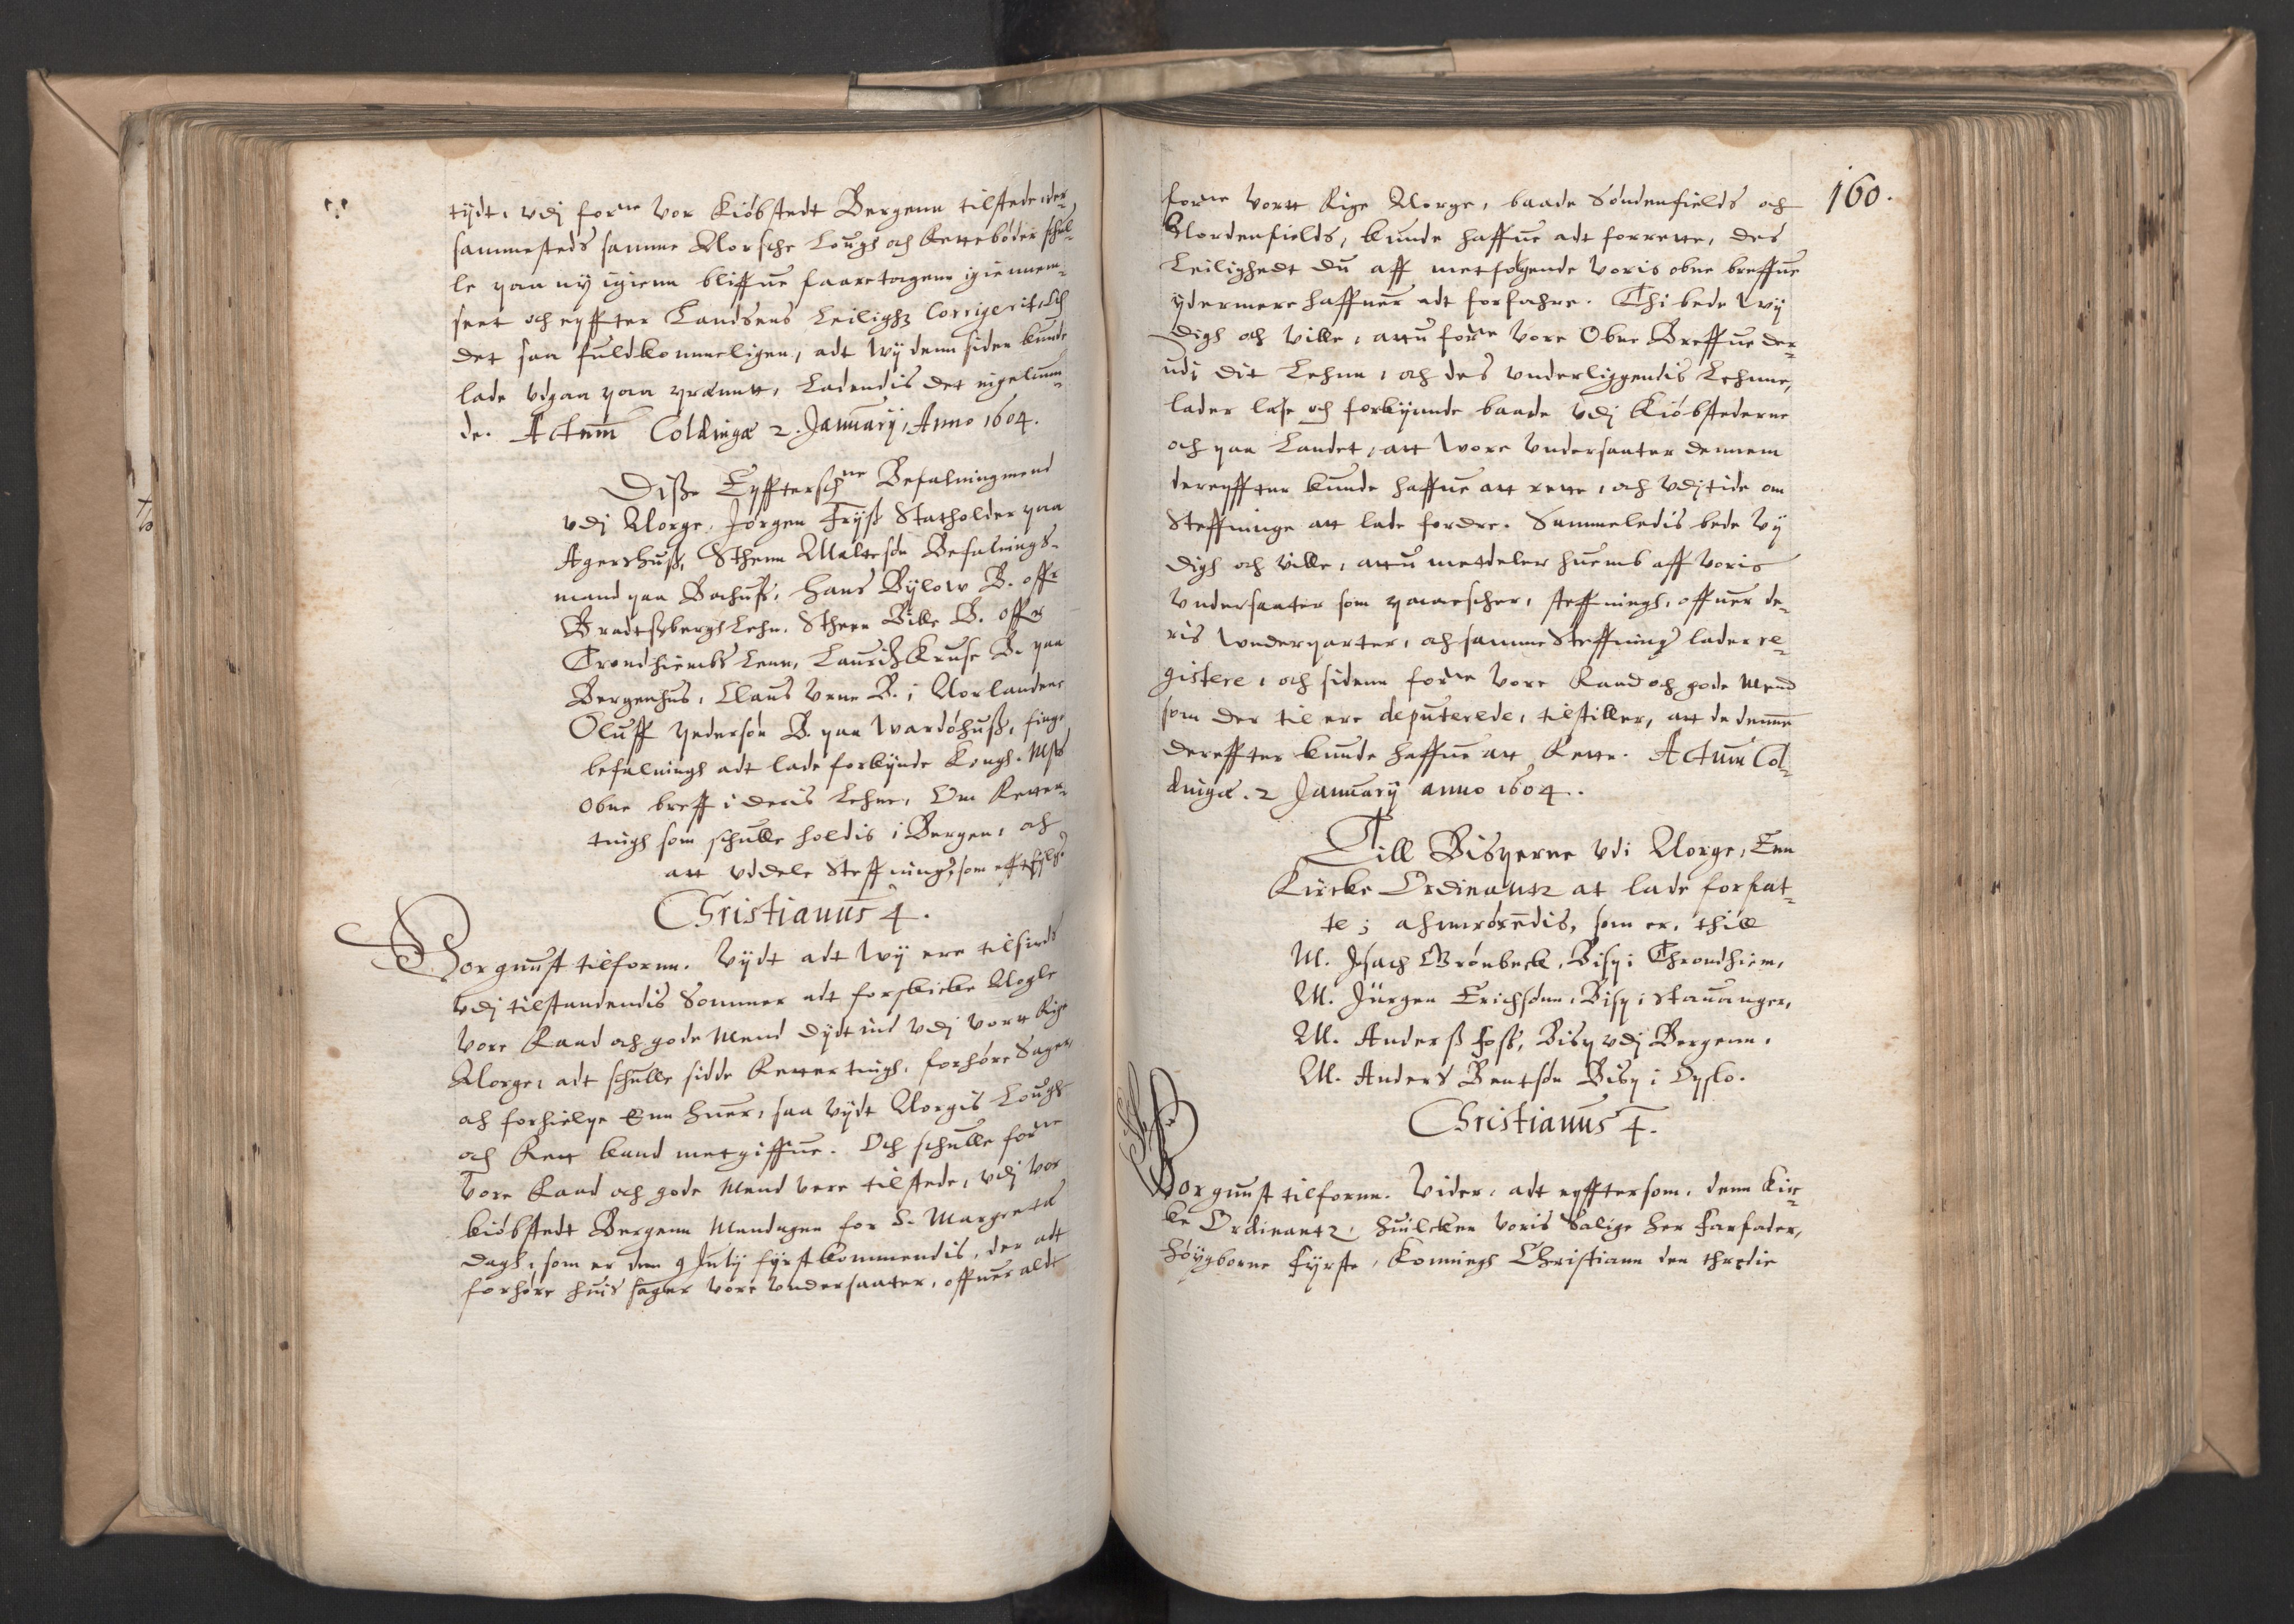 tijdt, vdj for^ne vor Kiöbstedt Bergenn tilstede, der¬
sammesteds samme Norsche Lough och Rettebøder schul¬
le paa ny igienn bliffue faaretagenn igiennem¬
seet och effter Landsens Leilighz Corrigerit, Och
det saa fuldkommeligen, adt wij denn siden kunde
lade vdgaa paa prænntt, Ladendis det eigelunn¬
de. Actum Coldingæ 2. Januarij, Anno 1604.
Disse Efftersch^ne Befalningmend
vdj Norge, Jörgen Frijss Statholder paa
Agershuss, Stheen Maltesön Befalnings¬
mand paa Bahuss, Hans Bylow B. offr
Bradtzbergh Lehn, Stheen Bille B. offr
Trondhiembs Lenn, Lauridz Kruse B. paa
Bergenhus, Claus Vrne B. i Norlandene
Oluff Pedersön B. paa Wardöhuss, finge
befalningh adt lade forkynde Kongh. Mtts
obne breff i deris Lehne, Om Retter¬
tingh som schulle holdis i Bergen, och
att vddele Steffning, som efftfylger
Christianus 4.
Vor gunst tilforne. Vijdt adt wij ere tilsinds
vdj tilstundendis Sommer adt forskicke Nogle
vore Raad och gode Mend dijdt ind vdj vort Rige
Norge, adt schulle sidde Rettertingh, forhöre Sager
och forhielpe Enn huer, saa vijdt Norgis Lough
och Rett kand metgiffue. Och schulle for^ne
vore Raad och gode Mend vere tilstede, vdj vor
kiöbstedt Bergenn Mandagen for S. Margreta
dagh, som er den 9 July förstkommendis, der adt
forhöre huis sager vore vndersaater, offuer aldt
160.
for^ne vortt Rige Norge, baade Søndenfields och
Nordenfields, kunde haffue adt forrette, des
Leilighedt du aff metfølgende voris obne breffue
ydermere haffuer adt forfahre. Thi bede wij
digh och ville, attu for^ne vore Obne Breffue der¬
udj dit Lehnn, och des vnderliggendis Lehnne,
lader læse och forkynde baade vdj Kiöbstederne
och paa Landet, att wore vndersaater dennem
dereffter kunde haffue att rette, och vdj tide om
Steffninge att lade fordre. Sammeledis bede vij
digh och ville, attu meddeler huemb aff voris
vndersaater som paaescher, steffningh, offuer de¬
ris wnderparter, och samme Steffning lader re¬
gistere, och sidenn for^ne vore Raad och gode Mend
som der til ere deputerede, tilstiller, att de denn
dereffter kunde haffue att Rette. Actum Col¬
dingæ. 2 Januarij anno 1604.
Till Bisperne vdi Norge, Enn
Kircke Ordinantz at lade forfat¬
te; ahnrörendis, som er, thill
M. Isach Grönbeck, Bisp i Throndhiem,
M. Jürgen Erichsönn, Bisp i Stauanger,
M. Anderss foss, Bisp vdj Bergenn,
M. Anders Bentsön Bisp i Opslo.
Christianus 4.
Vor gunst tilforne. Vider, adt effttersom, denn Kir¬
ke Ordinantz, huilcken voris Salige Her Farfader,
Höygborne Fyrste, Konningh Christiann den thredie